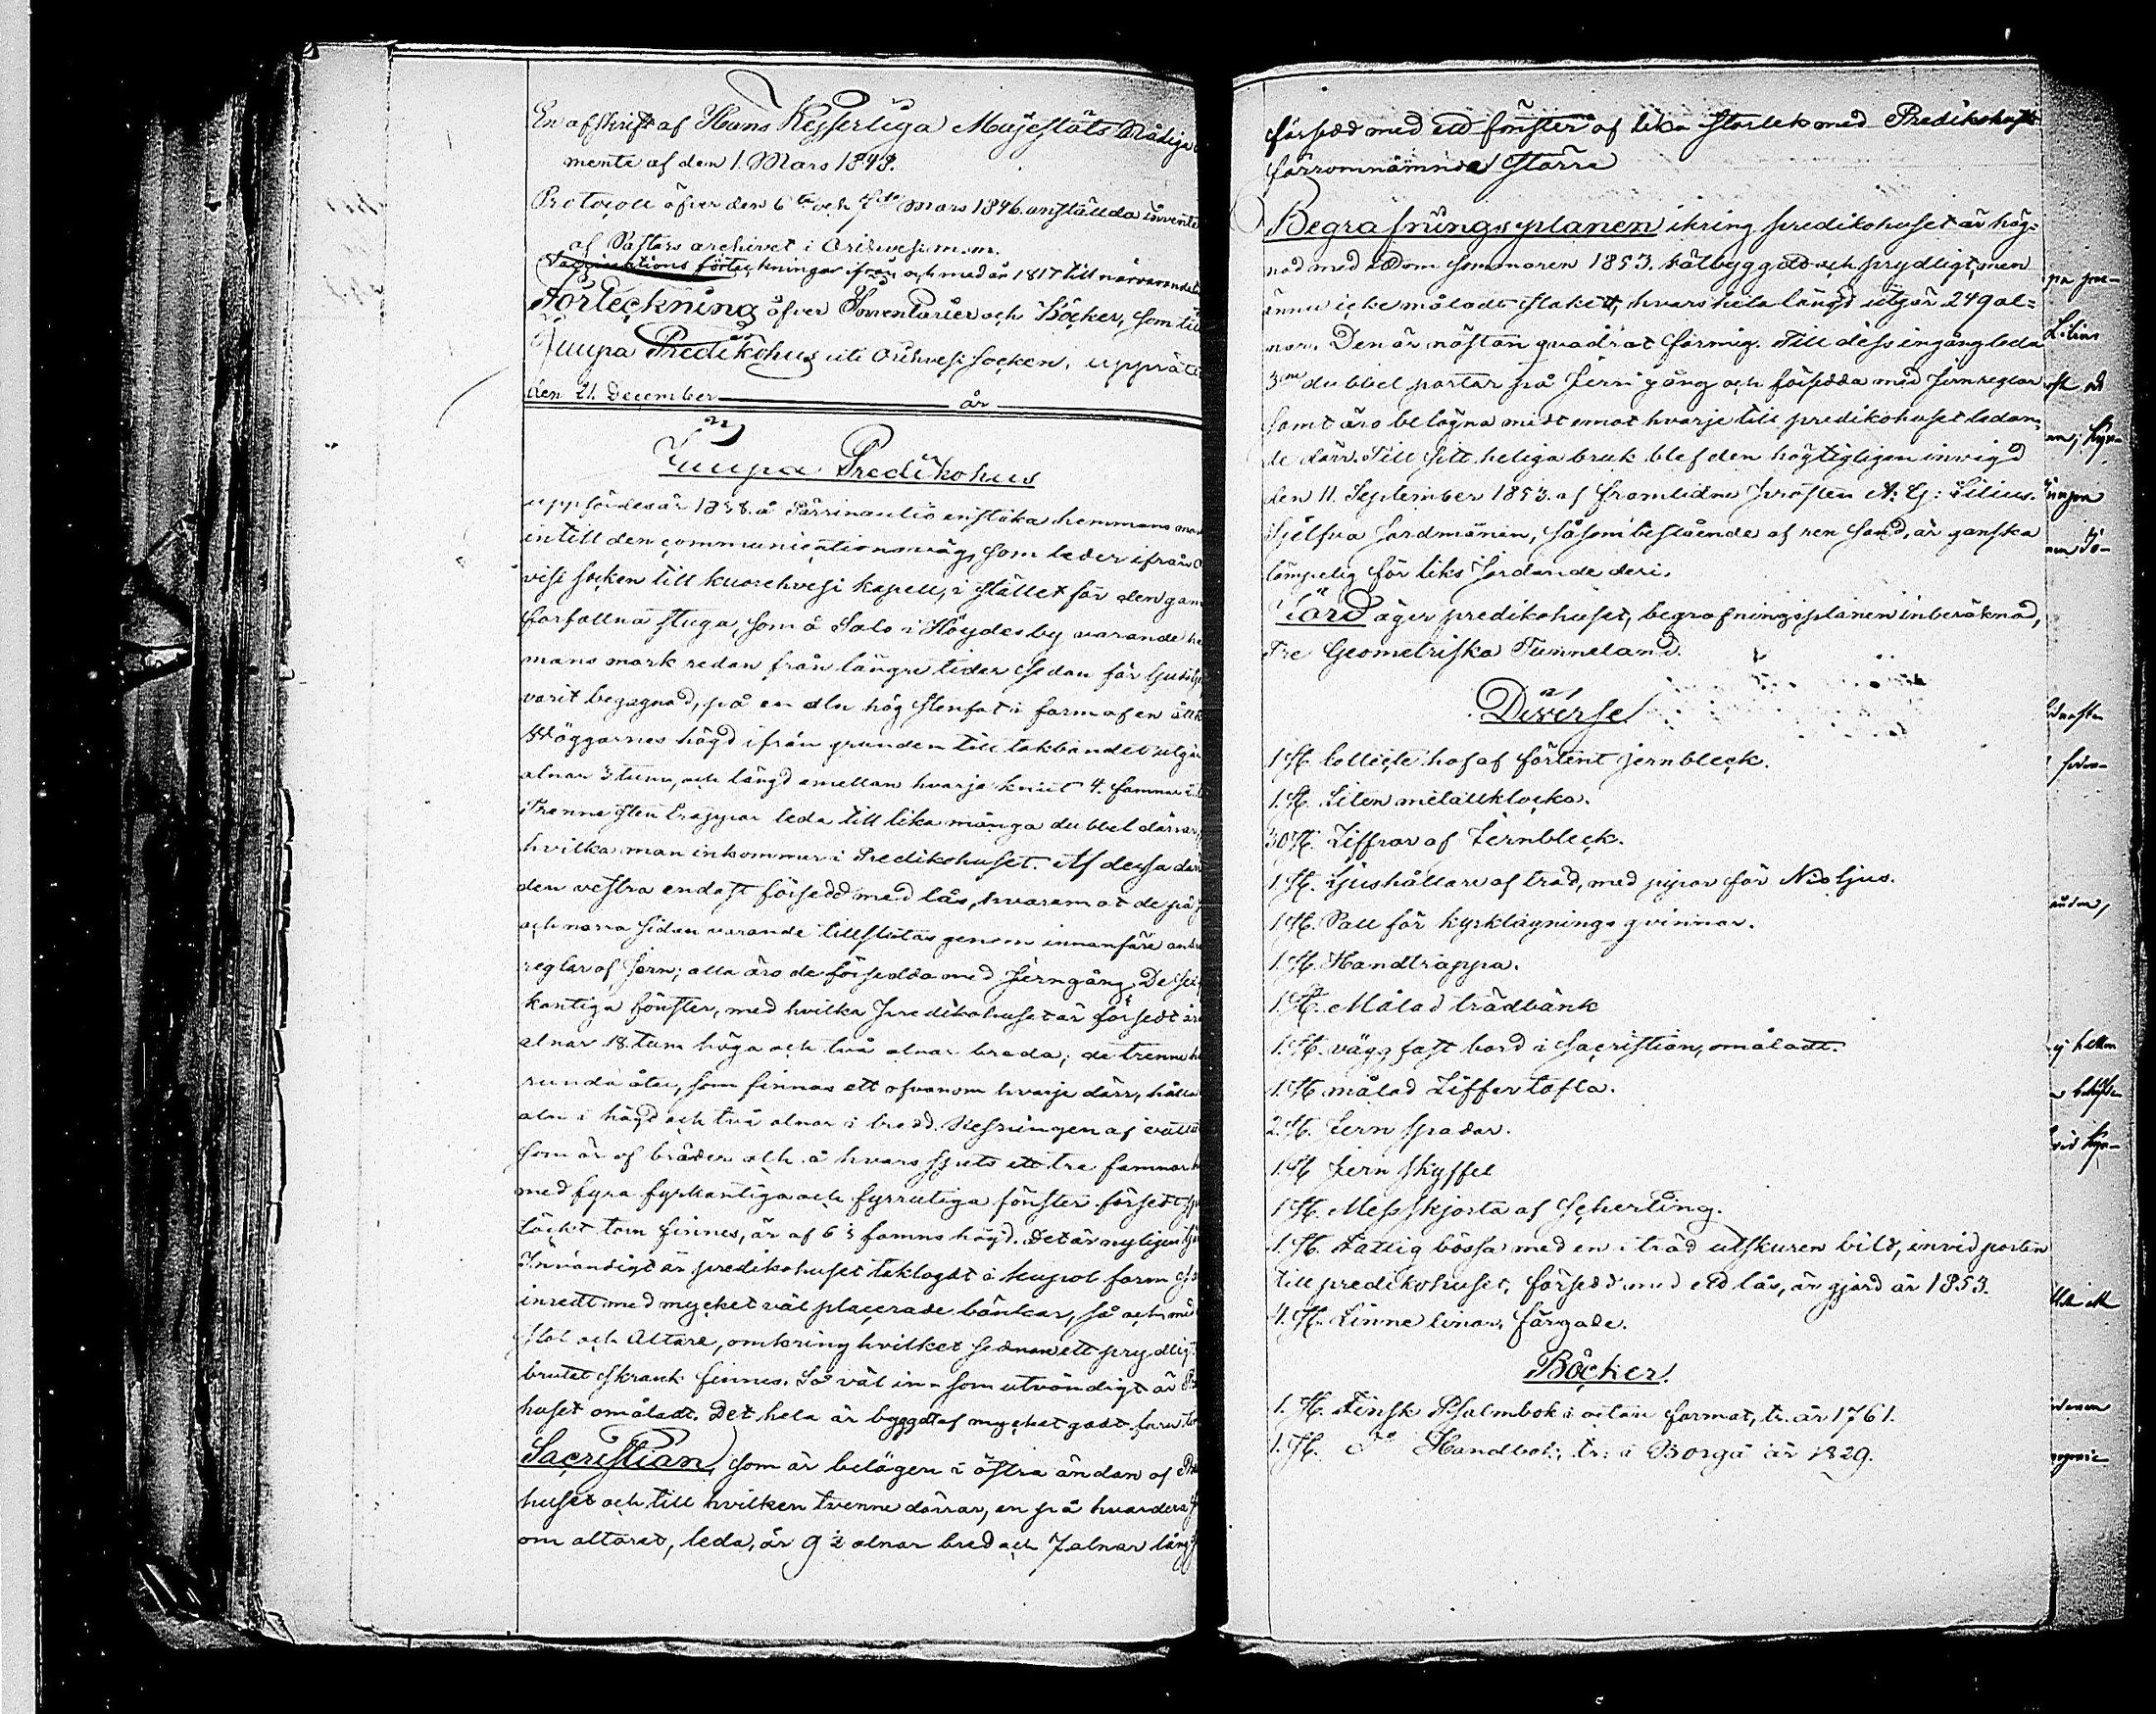 En afskrift af Hans Kejserliga Majestäts Nådiga
mente af den 1. Mars 1843.
Protocoll öfver den 6te och 7de Mars 1846. anställda invente
af Pastors archivet i Orihvesi m.m.
förteckningar ifrån och med år 1817 till närvarande
Förteckning öfver Inventarier och Böcker, som till
Juupa Predikohus uti Orihvesi socken, upprätt
den 21. December år
Juupa Predikohus
uppfördes år 1838. å enstaka hemmans
intill den communicationsväg, som leder ifrån O
visi socken till Kuorehvesi kapell, i stället för den gam
förfallna stuga, som å Salo i Höydesby varande he
mans mark redan från längre tider sedan för
varit begagnad, på en aln hög stenfot i form af en åttk
Väggarnes högd ifrån grunden till takbandet utgör
alnar 3 tum, och längd emellan hvarje knut 4. famnar
Trenne stentrappor leda till lika många dubbel dörrar,
hvilka man inkommer i Predikohuset. Af dessa dör
den vestra endast försedd med lås, hvaremot de på
och norra sidan varande tillslutas genom innanföre
reglar af Jern; alla äro de försedda med Jerngång. De
kantiga fönster, med hvilka Predikohuset är försedt är
alnar 18 tum höga och två alnar breda; de trenne h
runda åter, som finnas ett ofvanom hvarje dörr, hålla
aln i högd och två alnar i bredd. Resningen af
som är af bräder och å hvars spets ett tre famnar
med fyra fyrkantiga och fyrrutiga fönster försedt
täckt torn finnes, är af 6½ famns högd. Det är nyligen
Invändigt är predikohuset taklagdt i kupol form
inredt med mycket väl placerade bänkar, så och med
stol och Altare, omkring hvilket sednare ett prydligt
brutet skrank finnes. Så väl in- som utvändigt är P
huset omåladt. Det hela är byggdt af mycket godt furu
Sacristian, som är belägen i östra ändan af Pre
huset och till hvilken tvenne dörrar, en på hvardera
om altaret, leda, är 9½ alnar bred och 7 alnar lång
försedd med ett fönster af lika storlek med Predikohus
förromnämnda större
Begrafningsplanen ikring predikohuset är häg-
nad med ett om sommaren 1853. välbyggdt och prydligt, men
ännu icke måladt stakett, hvars hela längd utgör 249 al-
nar. Den är nästan quadrat formig. Till dess ingång leda
3ne dubbel portar på Jern gång och försedda med Jernreglar
samt äro belägna midt emot hvarje till predikohuset ledan-
de dörr. Till sitt heliga bruk blef den högtidligen invigd
den 11. September 1853. af framlidne Prosten A: G: Lilius.
Sjelfva Jordmånen, såsom bestående af ren sand, är ganska
lämpelig för liks Jordande deri.
Jord äger predikohuset, begrafningsplanen inberäknad,
Tre Geometriska Tunneland.
Diverse
1 St. Collecte hof af förtent jernbleck.
1. St. Liten metallklocka.
30 St. Ziffror af Jernbleck.
1. St. Ljushållare af träd, med pipor för Nio ljus.
1 St. Pall för kyrktagnings qvinnor.
1. St. Handtrappa.
1. St. Målad trädbänk
1. St. väggfast bord i Sacristian, omåladt.
1. St. målad Ziffertafla.
2. St. Jern spadar.
1. St. Jern skyffel
1 St. Messskjorta af Scherting.
1. St. Fattig bössa med en i träd utskuren bild, invid porten
till predikohuset, försedd med ett lås, är gjord år 1853.
4. St. Linne linor, färgade.
Böcker.
1. St. Finsk Psalmbok i octav format, tr. år 1761.
1. St. Do Handbok, tr: i Borgå år 1829.